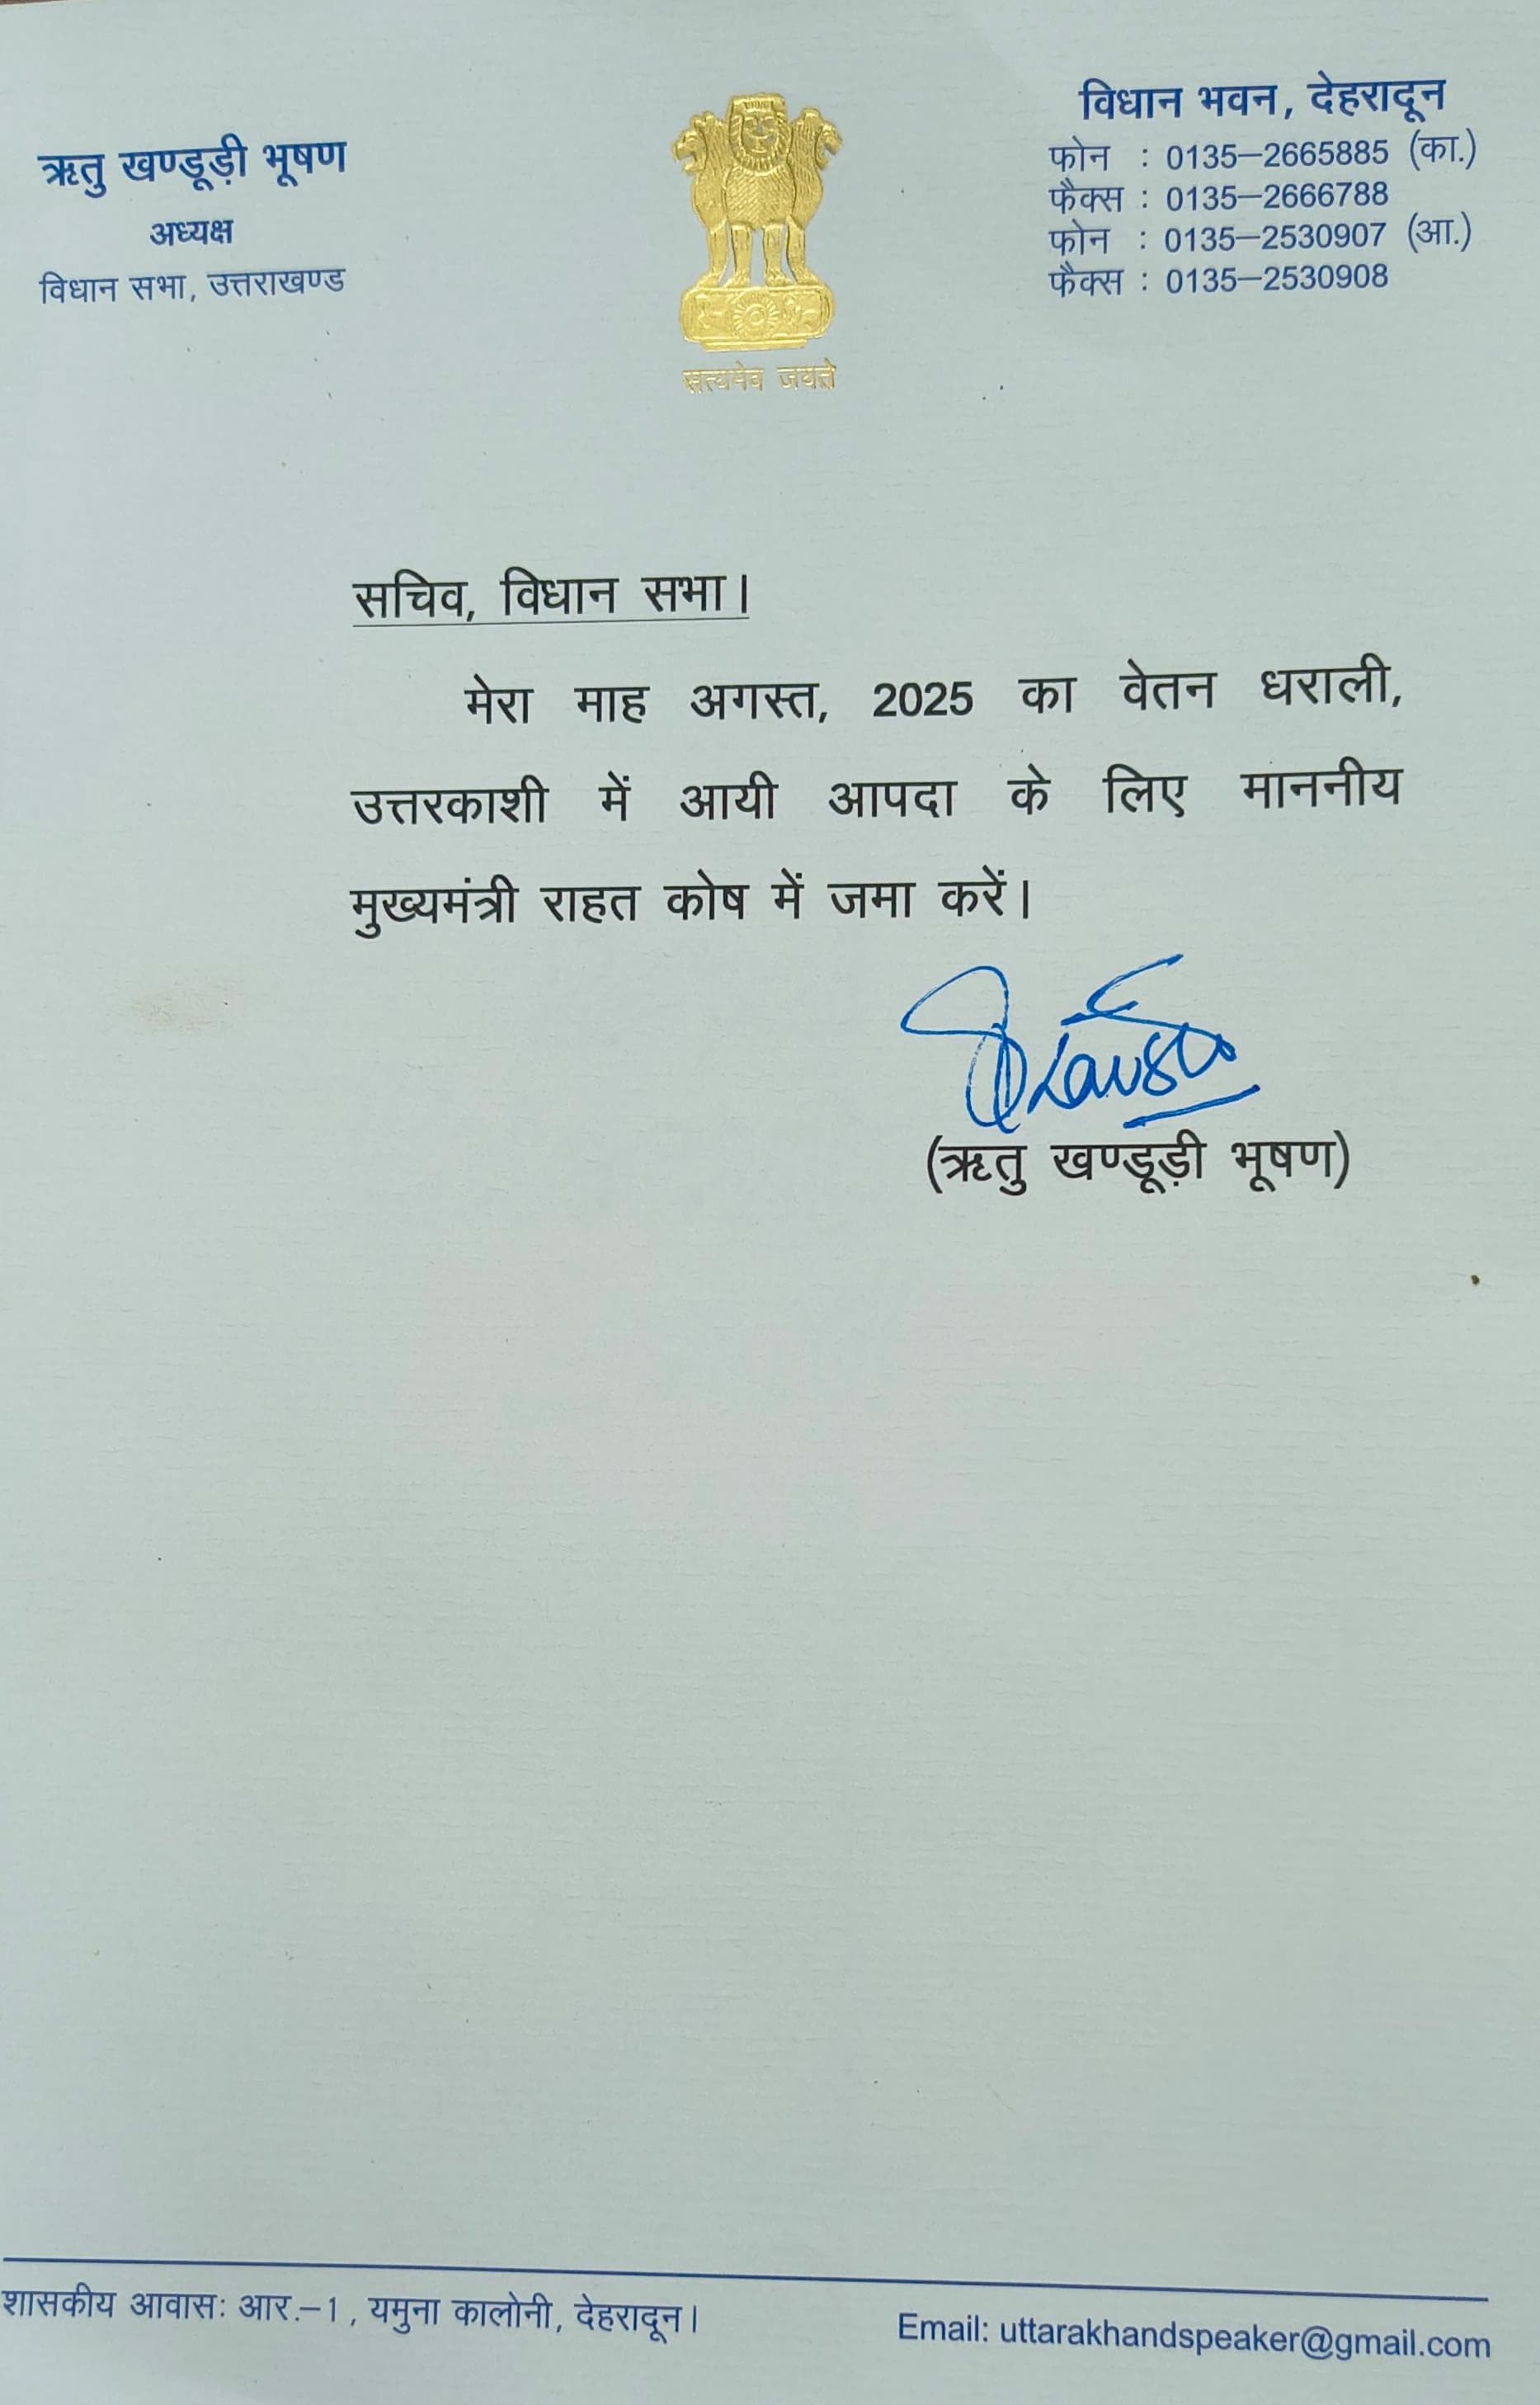 ऋतु खण्डूड़ी भूषण
अध्यक्ष
विधान सभा, उत्तराखण्ड
सत्यमेव जयते
विधान भवन, देहरादून
फोन : 0135–2665885 (का.)
फैक्स : 0135–2666788
फोन : 0135–2530907 (आ.)
फैक्स : 0135–2530908
सचिव, विधान सभा।
मेरा माह अगस्त, 2025 का वेतन धराली,
उत्तरकाशी में आयी आपदा के लिए माननीय
मुख्यमंत्री राहत कोष में जमा करें।
(ऋतु खण्डूड़ी भूषण)
शासकीय आवासः आर.–1, यमुना कालोनी, देहरादून।
Email: uttarakhandspeaker@gmail.com